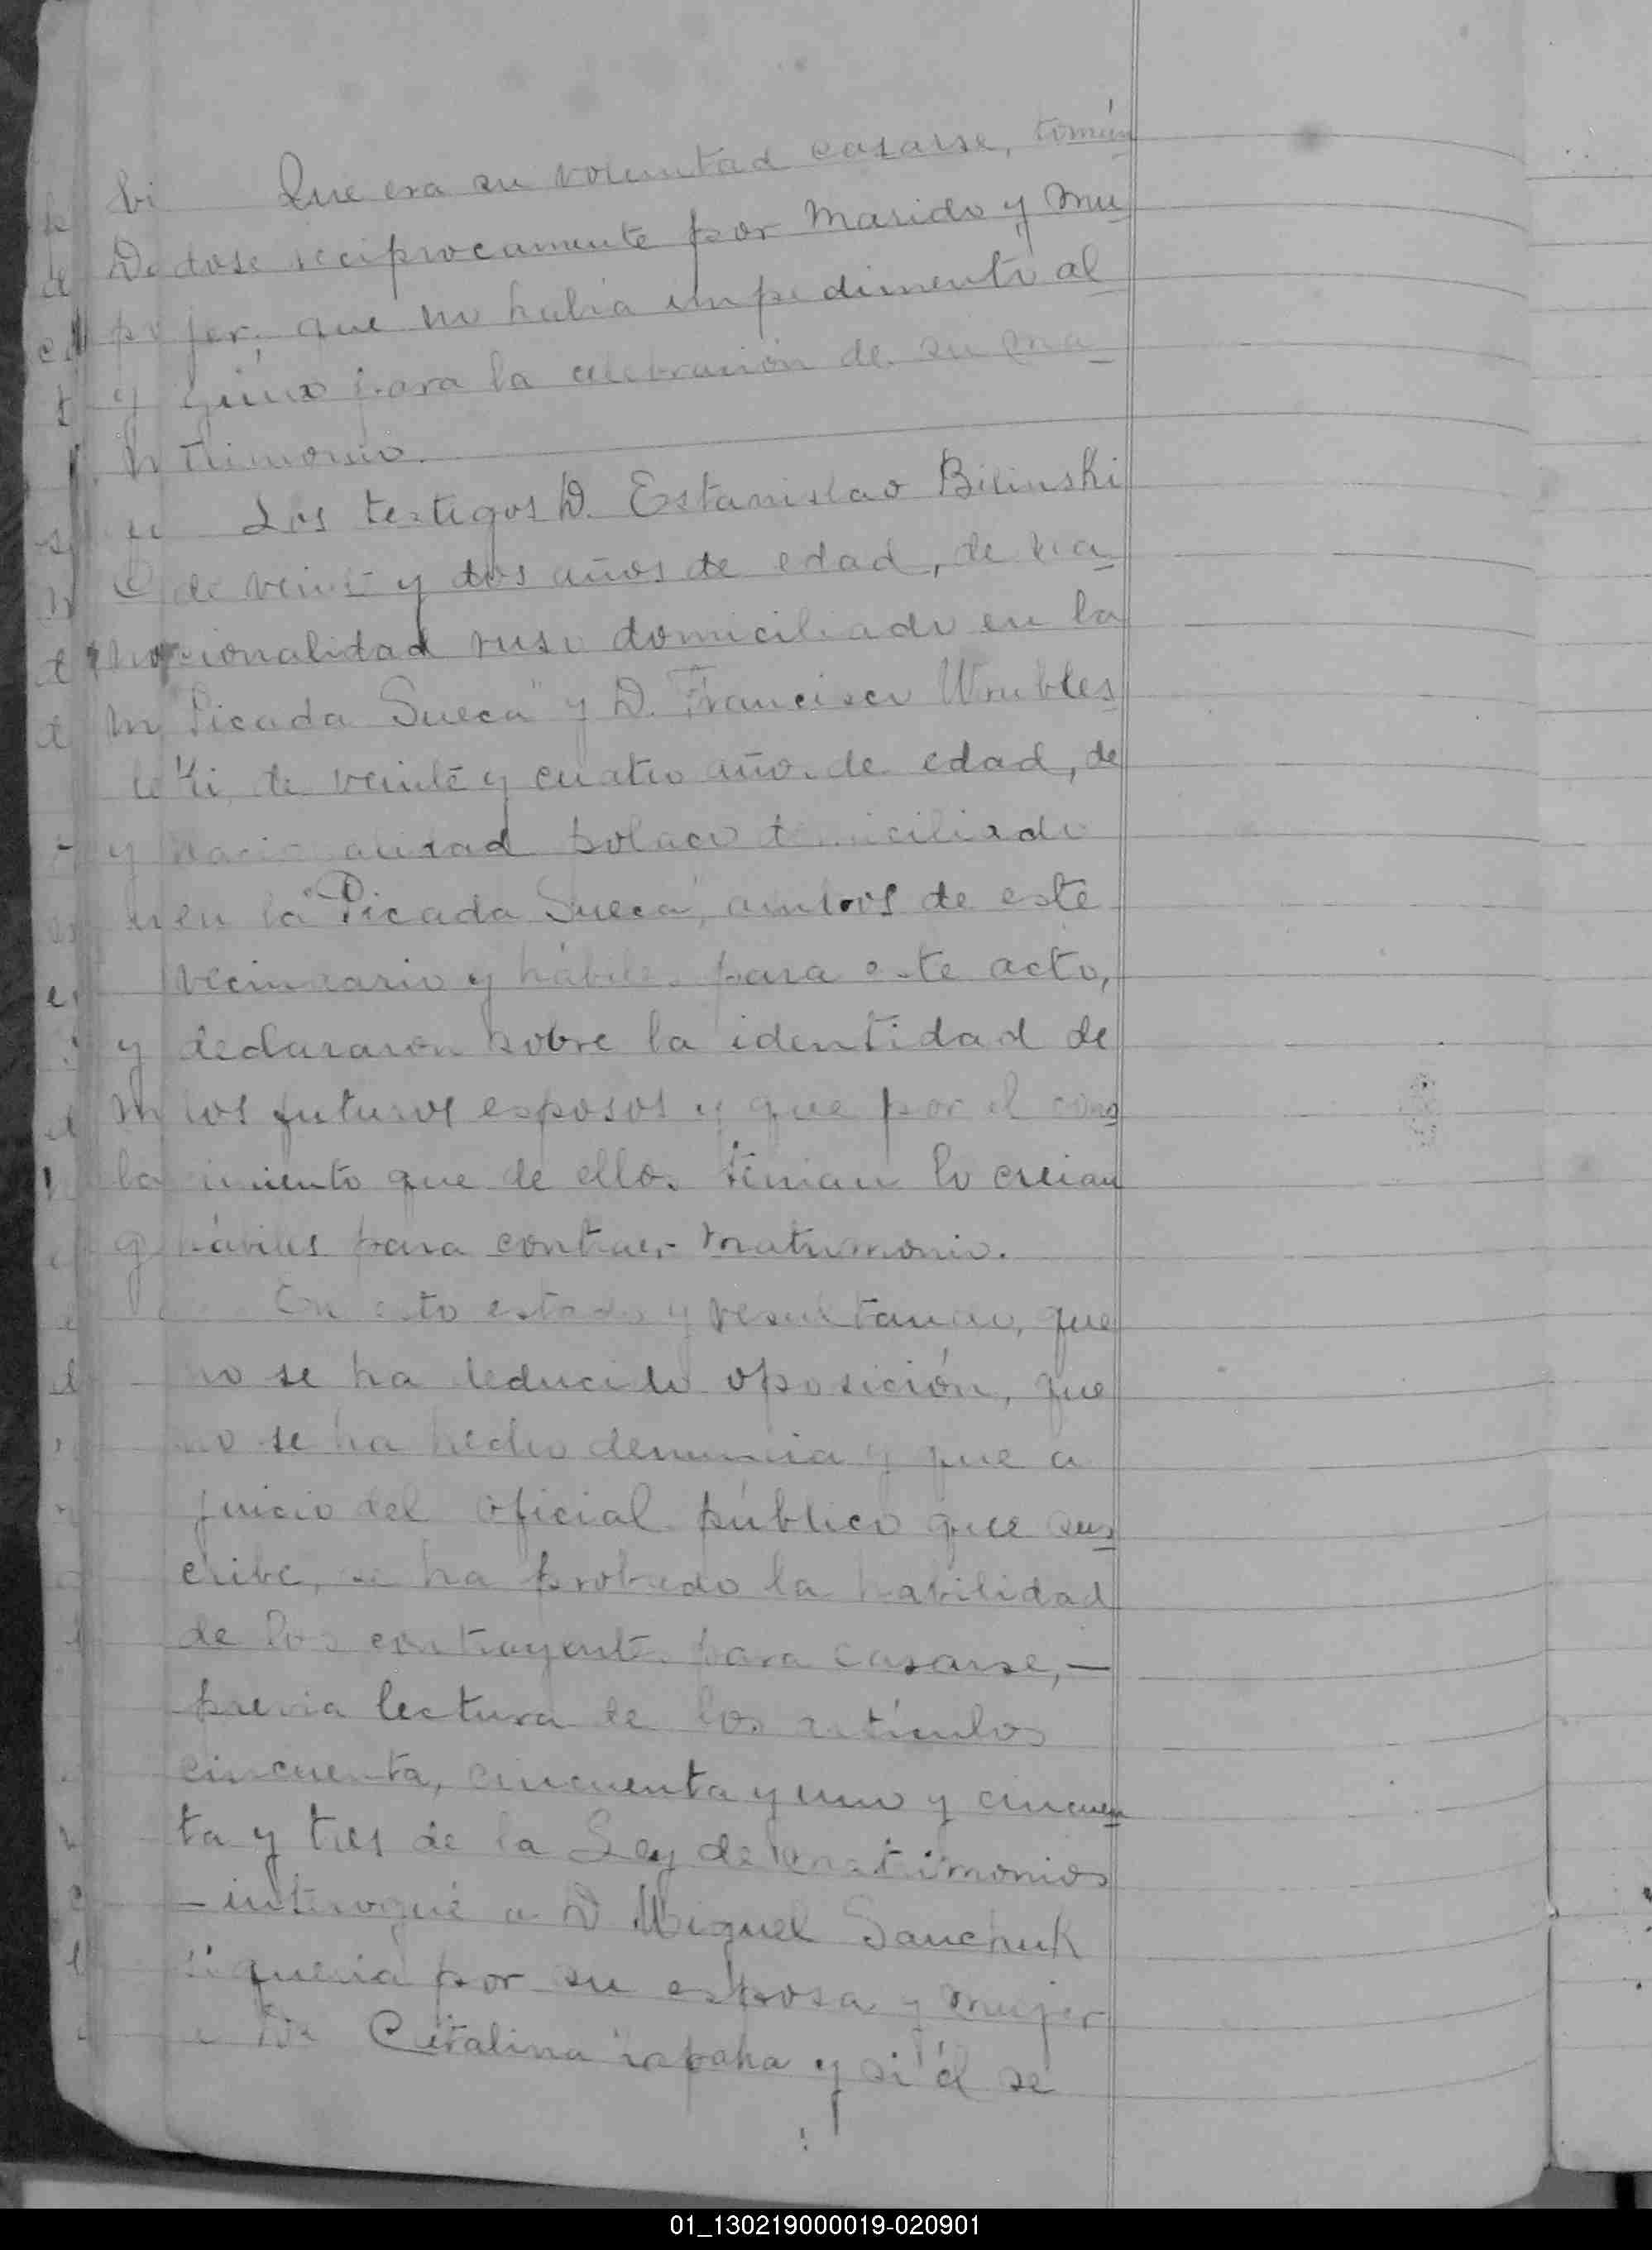 Que era su voluntad casarse, tomán
dose reciprocamente por marido y mu
jer; que no habia impedimento al
guno para la celebración de su ma
trimonio.
Los testigos D. Estanislao Bilinski
de veinte y dos años de edad, de na
cionalidad ruso domiciliado en la
"Picada Sueca" y D. Francisco Wrubles
ki, de veinte y cuatro años de edad, de
nacionalidad polaco domiciliado
en la "Picada Sueca", ambos de este
vecindario y hábiles para este acto,
declararon sobre la identidad de
los futuros esposos y que por el cono
cimiento que de ellos tenian lo creian
hábiles para contraer matrimonio.
En esto estado y resultando, que
no se ha deducido oposición, que
no se ha hecho denuncia y que a
juicio del oficial público que sus
cribe, se ha probado la habilidad
de los contrayentes para casarse, —
previa lectura de los articulos
cincuenta, cincuenta y uno y cincuen
ta y tres de la Ley de matrimonios
- interrogué a D Miguel Sanchuk
si queria por su esposa y mujer
a Da Catalina y si él se
01_130219000019-020901